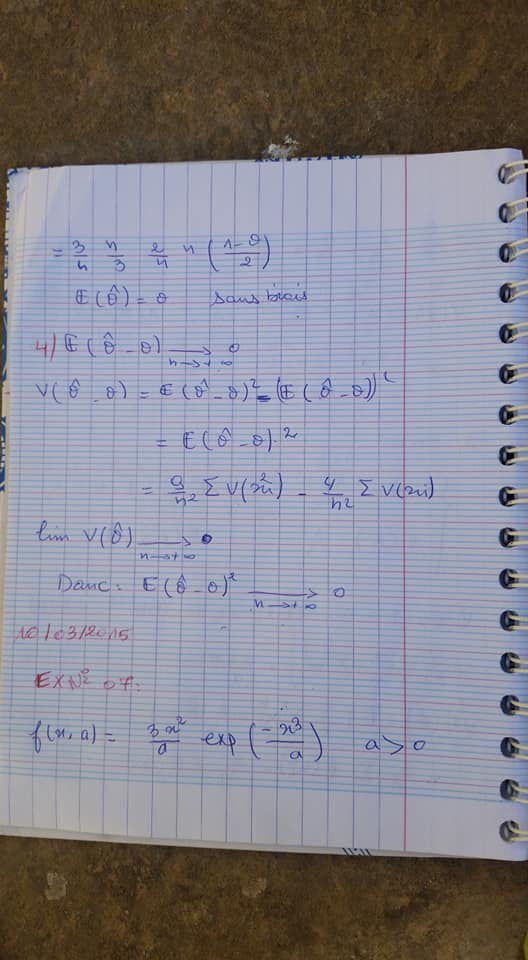 = 3/n n/3 2/n n (1-θ/2)
E(θ̂) = θ sans biais
4) E(θ̂ - θ) → 0 n→+∞
V(θ̂ - θ) = E(θ̂ - θ)² - (E(θ̂ - θ))²
= E(θ̂ - θ)²
= 9/n² Σ V(xi²) - 4/n² Σ V(xi)
lim V(θ̂) → 0 n→+∞
Donc: E(θ̂ - θ)² → 0 n→+∞
10/03/2015
EX N° 07:
f(x, a) = 3x²/a exp(-x³/a) a > 0